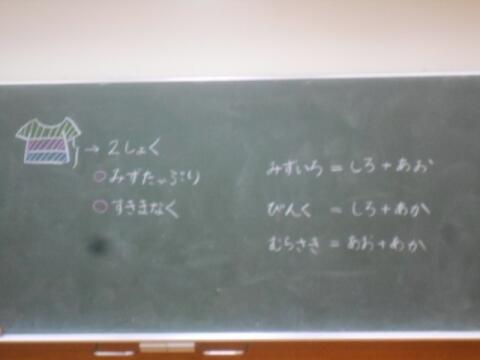 →2しょく
○みずたっぷり
○すきまなく
みずいろ=しろ+あお
ぴんく=しろ+あか
むらさき=あお+あか